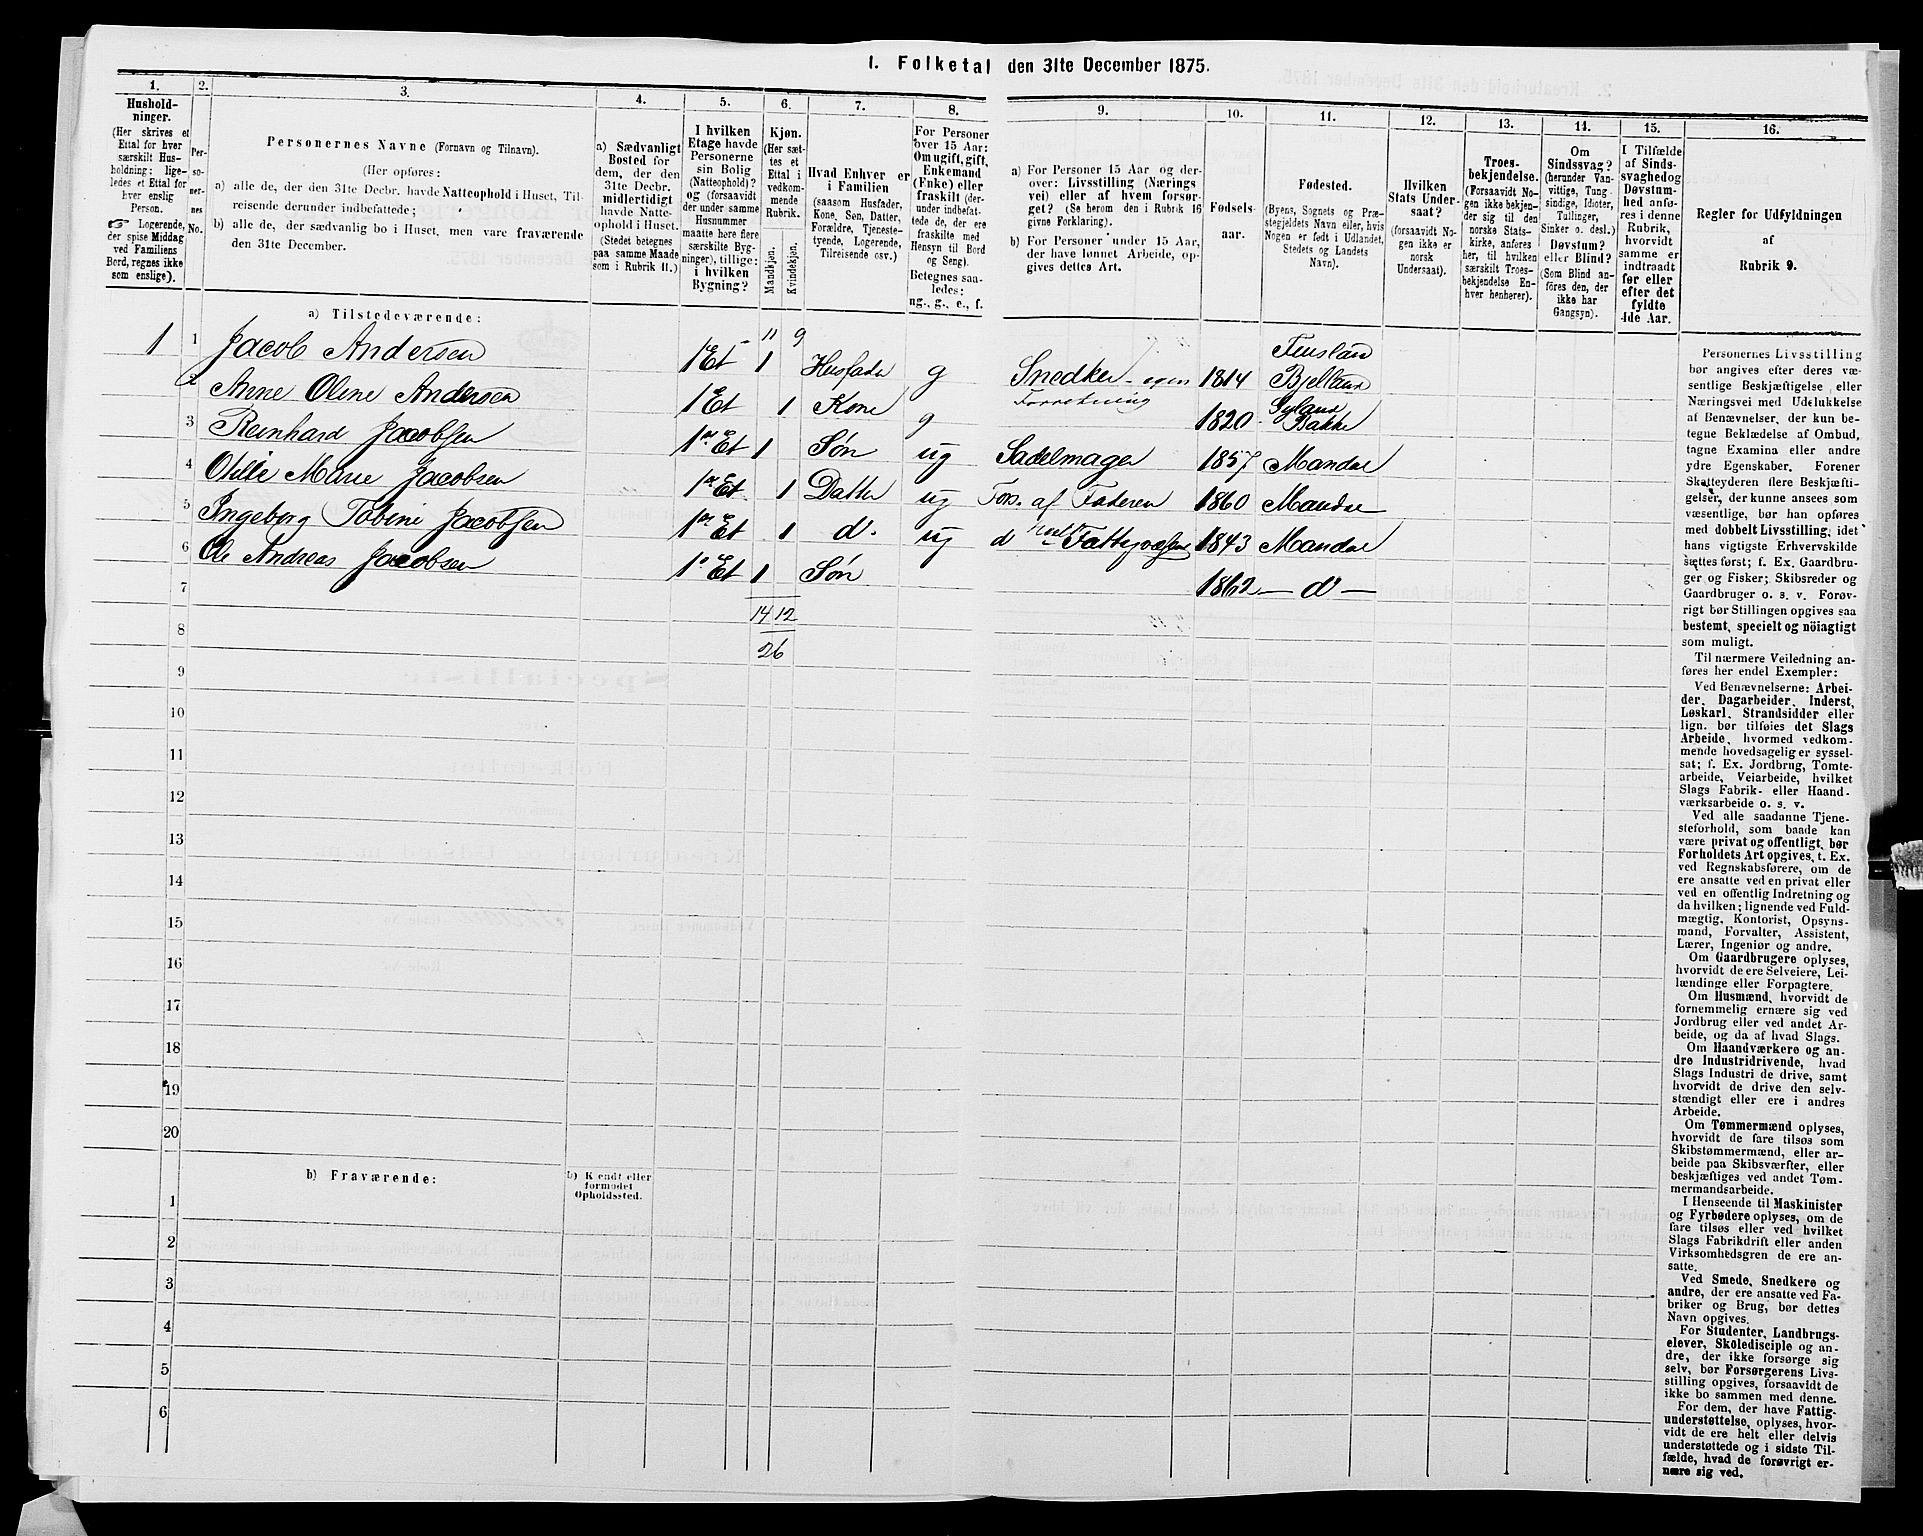 1. Folketal den 31te December 1875.
1.
Hushold-
ninger.
(Her skrives et
Ettal for hver
særskilt Hus-
holdning; lige-
ledes et Ettal for
hver enslig
Person.
☞ Logerende,
der spise Middag
ved Familiens
Bord, regnes ikke
som enslige).
2.
Per-
so-
ner-
nes
No.
3.
Personernes Navne (Fornavn og Tilnavn).
(Her opføres:
a) alle de, der den 31te Decbr. havde Natteophold i Huset, Til-
reisende derunder indbefattede;
b) alle de, der sædvanlig bo i Huset, men vare fraværende
den 31te December.
4.
a) Sædvanligt
Bosted for
dem, der den
31te Decbr.
midlertidigt
havde Natte-
ophold i Huset.
(Stedet betegnes
paa samme Maade
som i Rubrik 11.)
5.
I hvilken
Etage havde
Personerne
sin Bolig
(Natteophold)?
og (forsaavidt
der under samme
Husnummer
maatte høre flere
særskilte Byg-
ninger), tillige:
i hvilken
Bygning?
6.
Kjøn.
(Her sæt-
tes et
Ettal i
vedkom-
mende
Rubrik.
Mandkjøn.
Kvindekjøn.
7.
Hvad Enhver er
i Familien
(saasom Husfader,
Kone, Søn, Datter,
Forældre, Tjeneste-
tyende, Logerende,
Tilreisende osv.)
8.
For Personer
over 15 Aar:
Om ugift, gift,
Enkemand
(Enke) eller
fraskilt (der-
under indbefat-
tede de, der ere
fraskilte med
Hensyn til Bord
og Seng).
Betegnes saa-
ledes:
ug., g., e., f.
9.
a) For Personer 15 Aar og der-
over: Livsstilling (Nærings
vei) eller af hvem forsør-
get? (Se herom den i Rubrik 16
givne Forklaring).
b) For Personer under 15 Aar,
der have lønnet Arbeide, op-
gives dettes Art.
10.
Fødsels-
aar.
11.
Fødested.
(Byens, Sognets og Præ-
stegjeldets Navn eller, hvis
Nogen er født i Udlandet,
Stedets og Landets
Navn).
12.
Hvilken
Stats Under-
saat?
(forsaavidt No-
gen ikke er
norsk
Undersaat).
13.
Troes-
bekjendelse.
(Forsaavidt No-
gen ikke bekjen-
der sig til den
norske Stats-
kirke, anføres
her, til hvilken
særskilt Troes-
bekjendelse En-
hver henhører).
14.
Om
Sindssvag?
(herunder Van-
vittige, Tung-
sindige, Idioter,
Tullinger,
Sinker o. desl.)
Døvstum?
eller Blind?
(Som Blind an-
føres den, der
ikke har
Gangsyn).
15.
I Tilfælde
af Sinds-
svaghed og
Døvstum-
hed anfø-
res i denne
Rubrik,
hvorvidt
samme er
indtraadt
før eller
efter det
fyldte
4de Aar.
16.
Regler for Udfyldningen
af
Rubrik 9.
a) Tilstedeværende:
11 9
1 1 Jacob Andersen 1 Et 1 Husfader g Snedker - egen Forretning 1814 Finsland Bjelland
2 Anne Oline Andersen 1 Et 1 Kone g 1820 Gyland Bakke
3 Reinhard Jacobsen 1 Et 1 Søn ug Sadelmager 1857 Mandal
4 Otilie Marie Jacobsen 1 Et 1 Datter ug Fors. af Faderen 1860 Mandal
5 Ingeborg Tobine Jacobsen 1 Et 1 d. ug d Fattigvæsen 1843 Mandal
6 Ole Andreas Jacobsen 1 Et 1 Søn 1862 — d —
7
14 12
8
26
9
10
11
12
13
14
15
16
17
18
19
20
b) Fraværende:
b) Kendt eller
formodet
Opholdssted.
1
2
3
4
5
6
Personernes Livsstilling
bør angives efter deres væ-
sentlige Beskjæftigelse eller
Næringsvei med Udelukkelse
af Benævnelser, der kun be-
tegne Beklædelse af Ombud,
tagne Examina eller andre
ydre Egenskaber. Forener
Skatteyderen flere Beskjæfti-
gelser, der kunne ansees som
væsentlige, bør han opføres
med dobbelt Livsstilling, idet
hans vigtigste Erhvervskilde
sættes først; f. Ex. Gaardbru-
ger og Fisker; Skibsreder og
Gaardbruger o. s. v. Forøv-
rigt bør Stillingen opgives saa
bestemt, specielt og nöiagtigt
som muligt.
Til nærmere Veiledning an-
føres her endel Exempler:
Ved Benævnelserne: Arbei-
der, Dagarbeider, Inderst,
Løskarl, Strandsidder eller
lign. bør tilføies det Slags
Arbeide, hvormed vedkom-
mende hovedsagelig er syssel-
sat; f. Ex. Jordbrug, Tomte-
arbeide, Veiarbeide, hvilket
Slags Fabrik- eller Haand-
værksarbeide o. s. v.
Ved alle saadanne Tjene-
steforhold, som baade kan
være privat og offentligt, bør
Forholdets Art opgives, t. Ex.
ved Regnskabsførere, om de
ere ansatte ved en privat eller
ved en offentlig Indretning og
da hvilken; lignende ved Fuld-
mægtig, Kontorist, Opsyns-
mand, Forvalter, Assistent,
Lærer, Ingeniør og andre.
Om Gaardbrugere oplyses,
hvorvidt de ere Selveiere, Lei-
lændinge eller Forpagtere.
Om Husmænd, hvorvidt de
fornemmelig ernære sig ved
Jordbrug eller ved andet Ar-
beide, og da af hvad Slags.
Om Haandværkere og an-
dre Industridrivende, hvad
Slags Industri de drive, samt
hvorvidt de drive den selv-
stændigt eller ere i andres
Arbeide.
Om Tømmermænd oplyses,
hvorvidt de fare tilsøs som
Skibstømmermænd, eller ar-
beide paa Skibsværfter, eller
beskjæftiges ved andet Tøm-
mermandsarbeide.
I Henseende til Maskinister
og Fyrbødere oplyses, om de
fare tilsøs eller ved hvilket
Slags Fabrikdrift eller anden
Virksomhedsgren de ere an-
satte.
Ved Smede, Snedkere og
andre, der ere ansatte ved Fa-
briker og Brug, bør dettes
Navn opgives.
For Studenter, Landbrugs-
elever, Skoledisciple og an-
dre, der ikke forsørge sig
selv, bør Forsørgerens Livs-
stilling opgives, forsaavidt de
ikke bo sammen med denne.
For dem, der have Fattig-
understøttelse, oplyses, hvor-
vidt de ere helt eller delvis
understøttede og i sidste Til-
fælde, hvad de forøvrigt er-
nære sig ved.